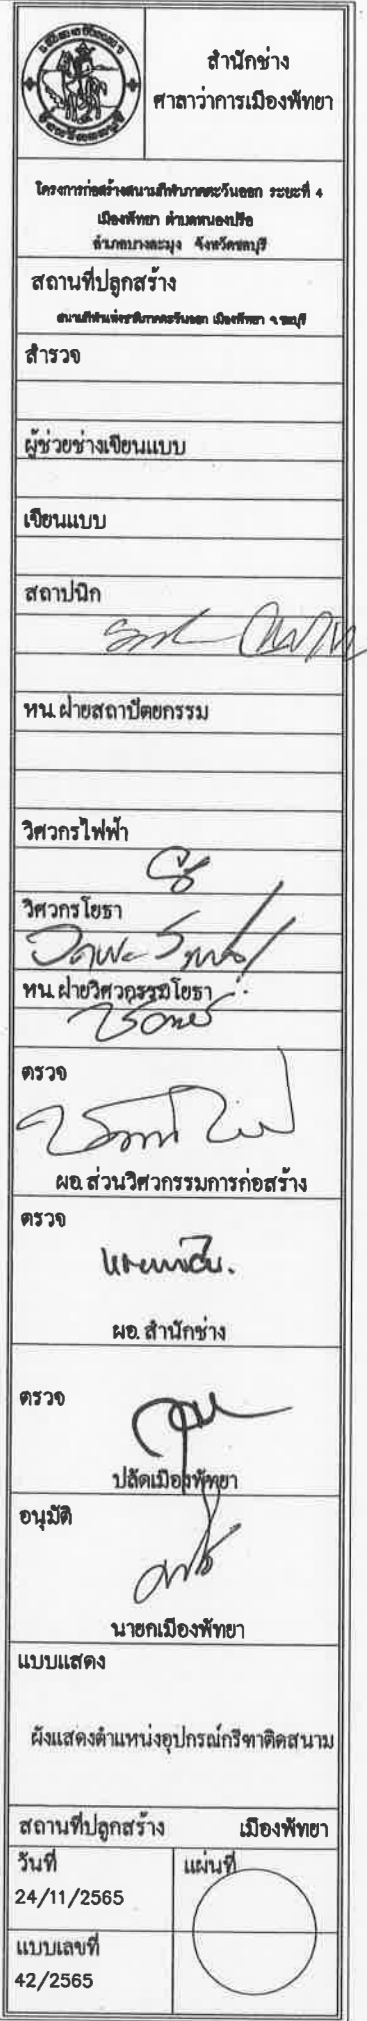 สำนักช่าง
ศาลาว่าการเมืองพัทยา
โครงการก่อสร้างสนามกีฬาภาคตะวันออก ระยะที่ 4
เมืองพัทยา ตำบลหนองปรือ
อำเภอบางละมุง จังหวัดชลบุรี
สถานที่ปลูกสร้าง
สนามกีฬาแห่งชาติภาคตะวันออก เมืองพัทยา จ.ชลบุรี
สำรวจ
ผู้ช่วยช่างเขียนแบบ
เขียนแบบ
สถาปนิก
หน.ฝ่ายสถาปัตยกรรม
วิศวกรไฟฟ้า
วิศวกรโยธา
หน.ฝ่ายวิศวกรรมโยธา
ตรวจ
ผอ.ส่วนวิศวกรรมการก่อสร้าง
ตรวจ
ผอ.สำนักช่าง
ตรวจ
ปลัดเมืองพัทยา
อนุมัติ
นายกเมืองพัทยา
แบบแสดง
ผังแสดงตำแหน่งอุปกรณ์กรีฑาติดสนาม
สถานที่ปลูกสร้าง เมืองพัทยา
วันที่ แผ่นที่
24/11/2565
แบบเลขที่
42/2565